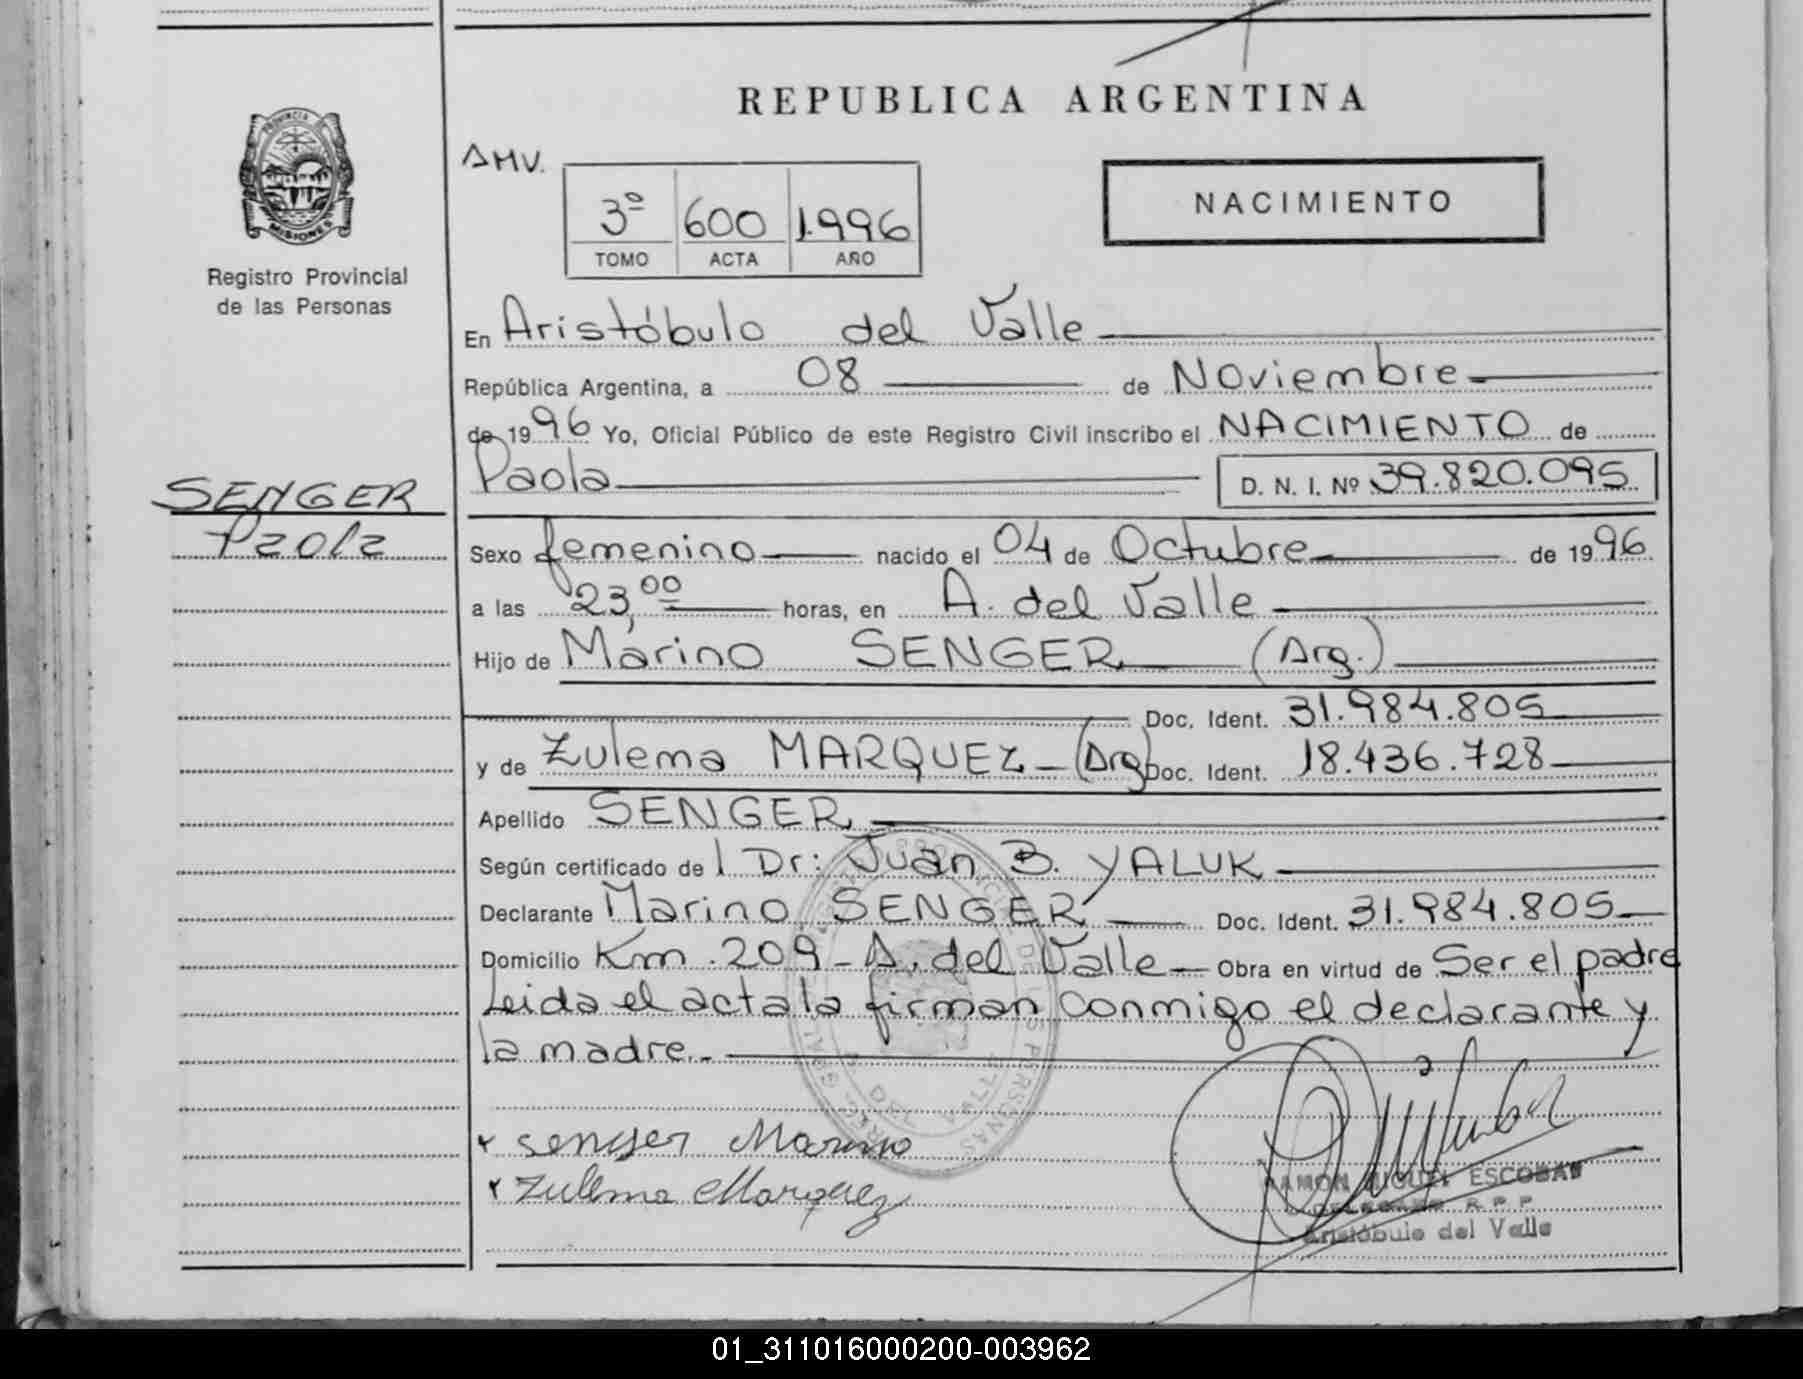 REPUBLICA ARGENTINA
PROVINCIA DE
MISIONES
Registro Provincial
de las Personas
AMV.
3º 600 1.996
TOMO ACTA AÑO
NACIMIENTO
En Aristóbulo del Valle
República Argentina, a 08 de Noviembre
de 1996 Yo, Oficial Público de este Registro Civil inscribo el NACIMIENTO de
Paola D. N. I. Nº 39.820.095
SENGER
Paola
Sexo femenino nacido el 04 de Octubre de 1996
a las 23,00 horas, en A. del Valle
Hijo de Marino SENGER (Arg.)
Doc. Ident. 31.984.805
y de Zulema MARQUEZ (Arg) Doc. Ident. 18.436.728
Apellido SENGER
Según certificado de l Dr: Juan B. YALUK
Declarante Marino SENGER Doc. Ident. 31.984.805
Domicilio Km. 209 - A. del Valle Obra en virtud de Ser el padre
Leida el acta la firman conmigo el declarante y
la madre.-
x senger Marino
x Zulema Marquez
RAMON MIGUEL ESCOBAR
DELEGADO R.P.P
Aristóbulo del Valle
01_311016000200-003962